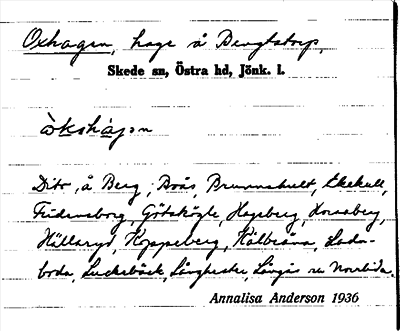 Oxhagen, hage å Bengtstorp,
Skede sn, Östra hd, Jönk. l.
Dito, å Berg, Boås, Brunnshult, Ekekull,
Fridensborg, Götaskögle, Hageberg,
Hällaryd, Koppeberg, Kålbråna, Lada-
boda, Luckebäck, Långhester, Norrlida.
Annalisa Anderson 1936